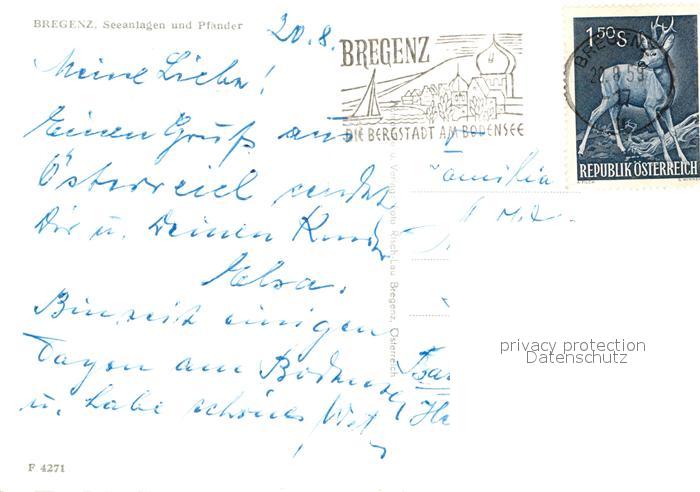 BREGENZ, Seeanlagen und Pfänder
20.8.
Meine Liebe!
Einen Gruß aus
Österreich sendet
Dir u. Deinen Kindern
Elsa.
Bin seit einigen
Tagen am Bodensee
u. habe schönes Wet
F 4271
BREGENZ
DIE BERGSTADT AM BODENSEE
BREGENZ
1.50 S
REPUBLIK ÖSTERREICH
Familie
Risch-Lau Bregenz, Österreich
privacy protection
Datenschutz